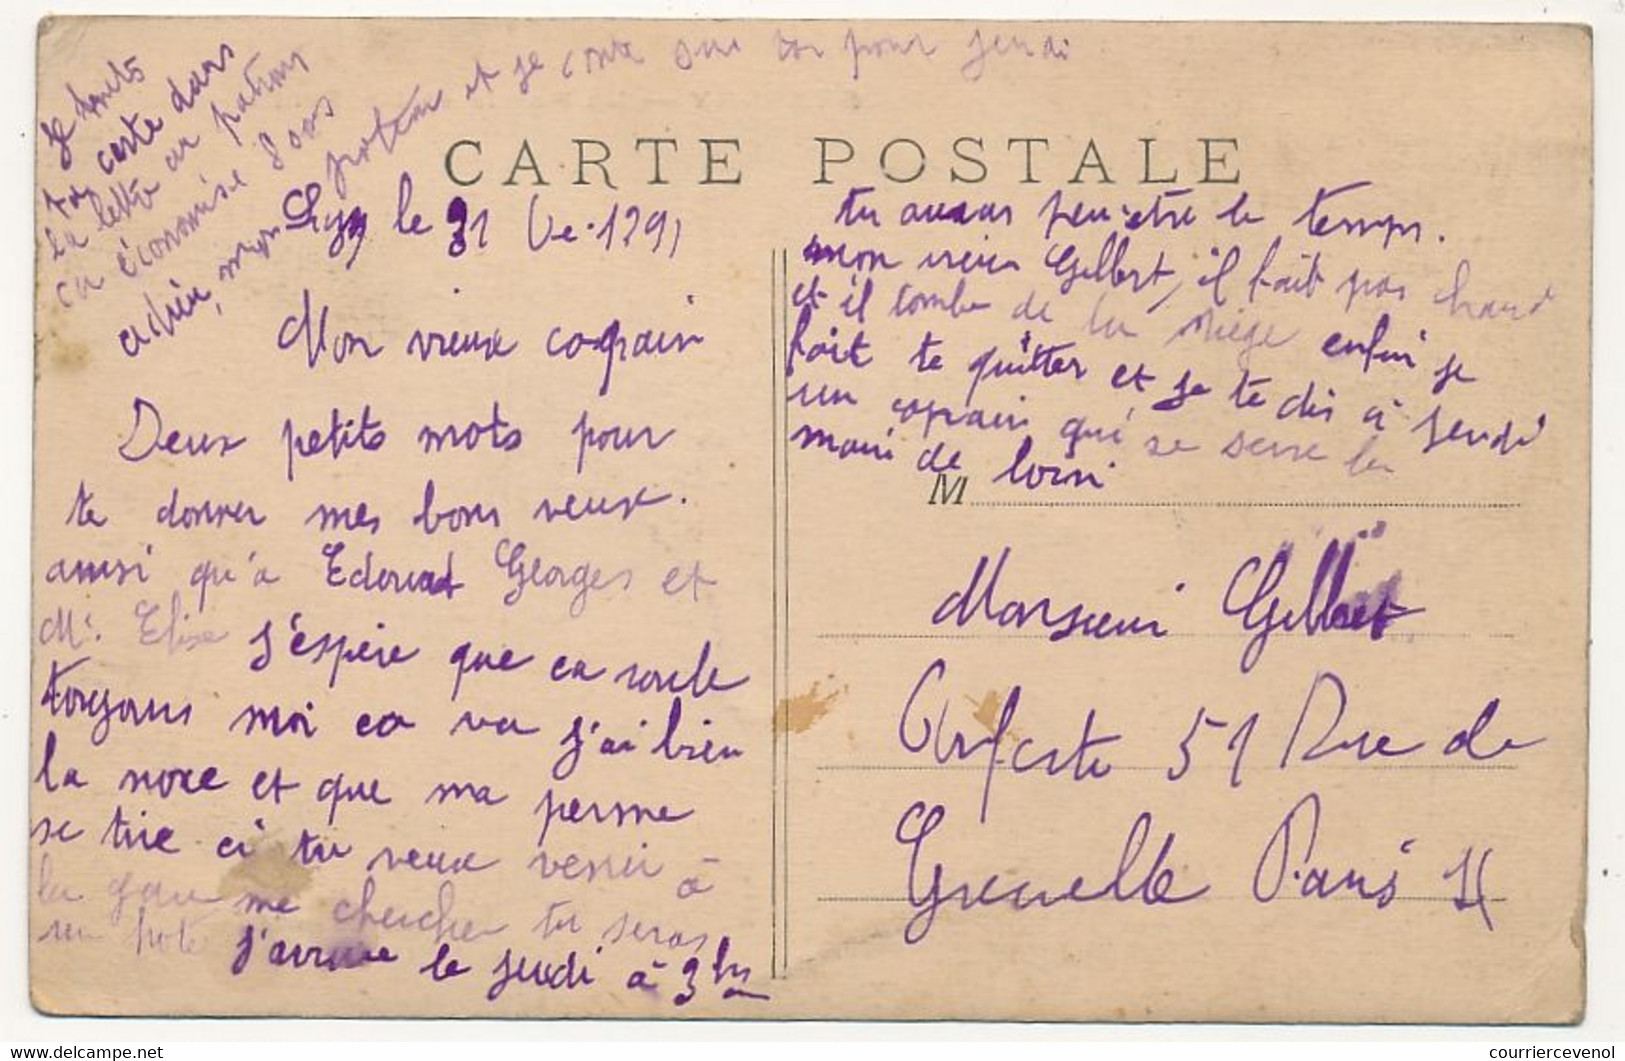 CARTE POSTALE
le 31
Mon vieux copain
Deux petits mots pour
te donner mes bons veux.
ainsi qu'a Edouard Georges et
Mr. Elise j'espère que ca roule
toujours moi ca va j'ai bien
la noce et que ma perme
se tire ci tu veux venir à
la gare me chercher tu seras
un pote j'arrive le jeudi à 3hs
tu auras peu-etre le temps.
mon vieux Gilbert, il fait pas chaud
et il tombe de la niége enfin je
fait te quitter et je te dis à jeudi
un copain qui se serre la
main de loin
M
Je mets
ta carte dans
la lettre au patrons
ca économise 8 sous
adieu, mon poteau et je conte sur toi pour jeudi
Monsieur Gilbert
51 Rue de
Grenelle Paris
courriercevenol